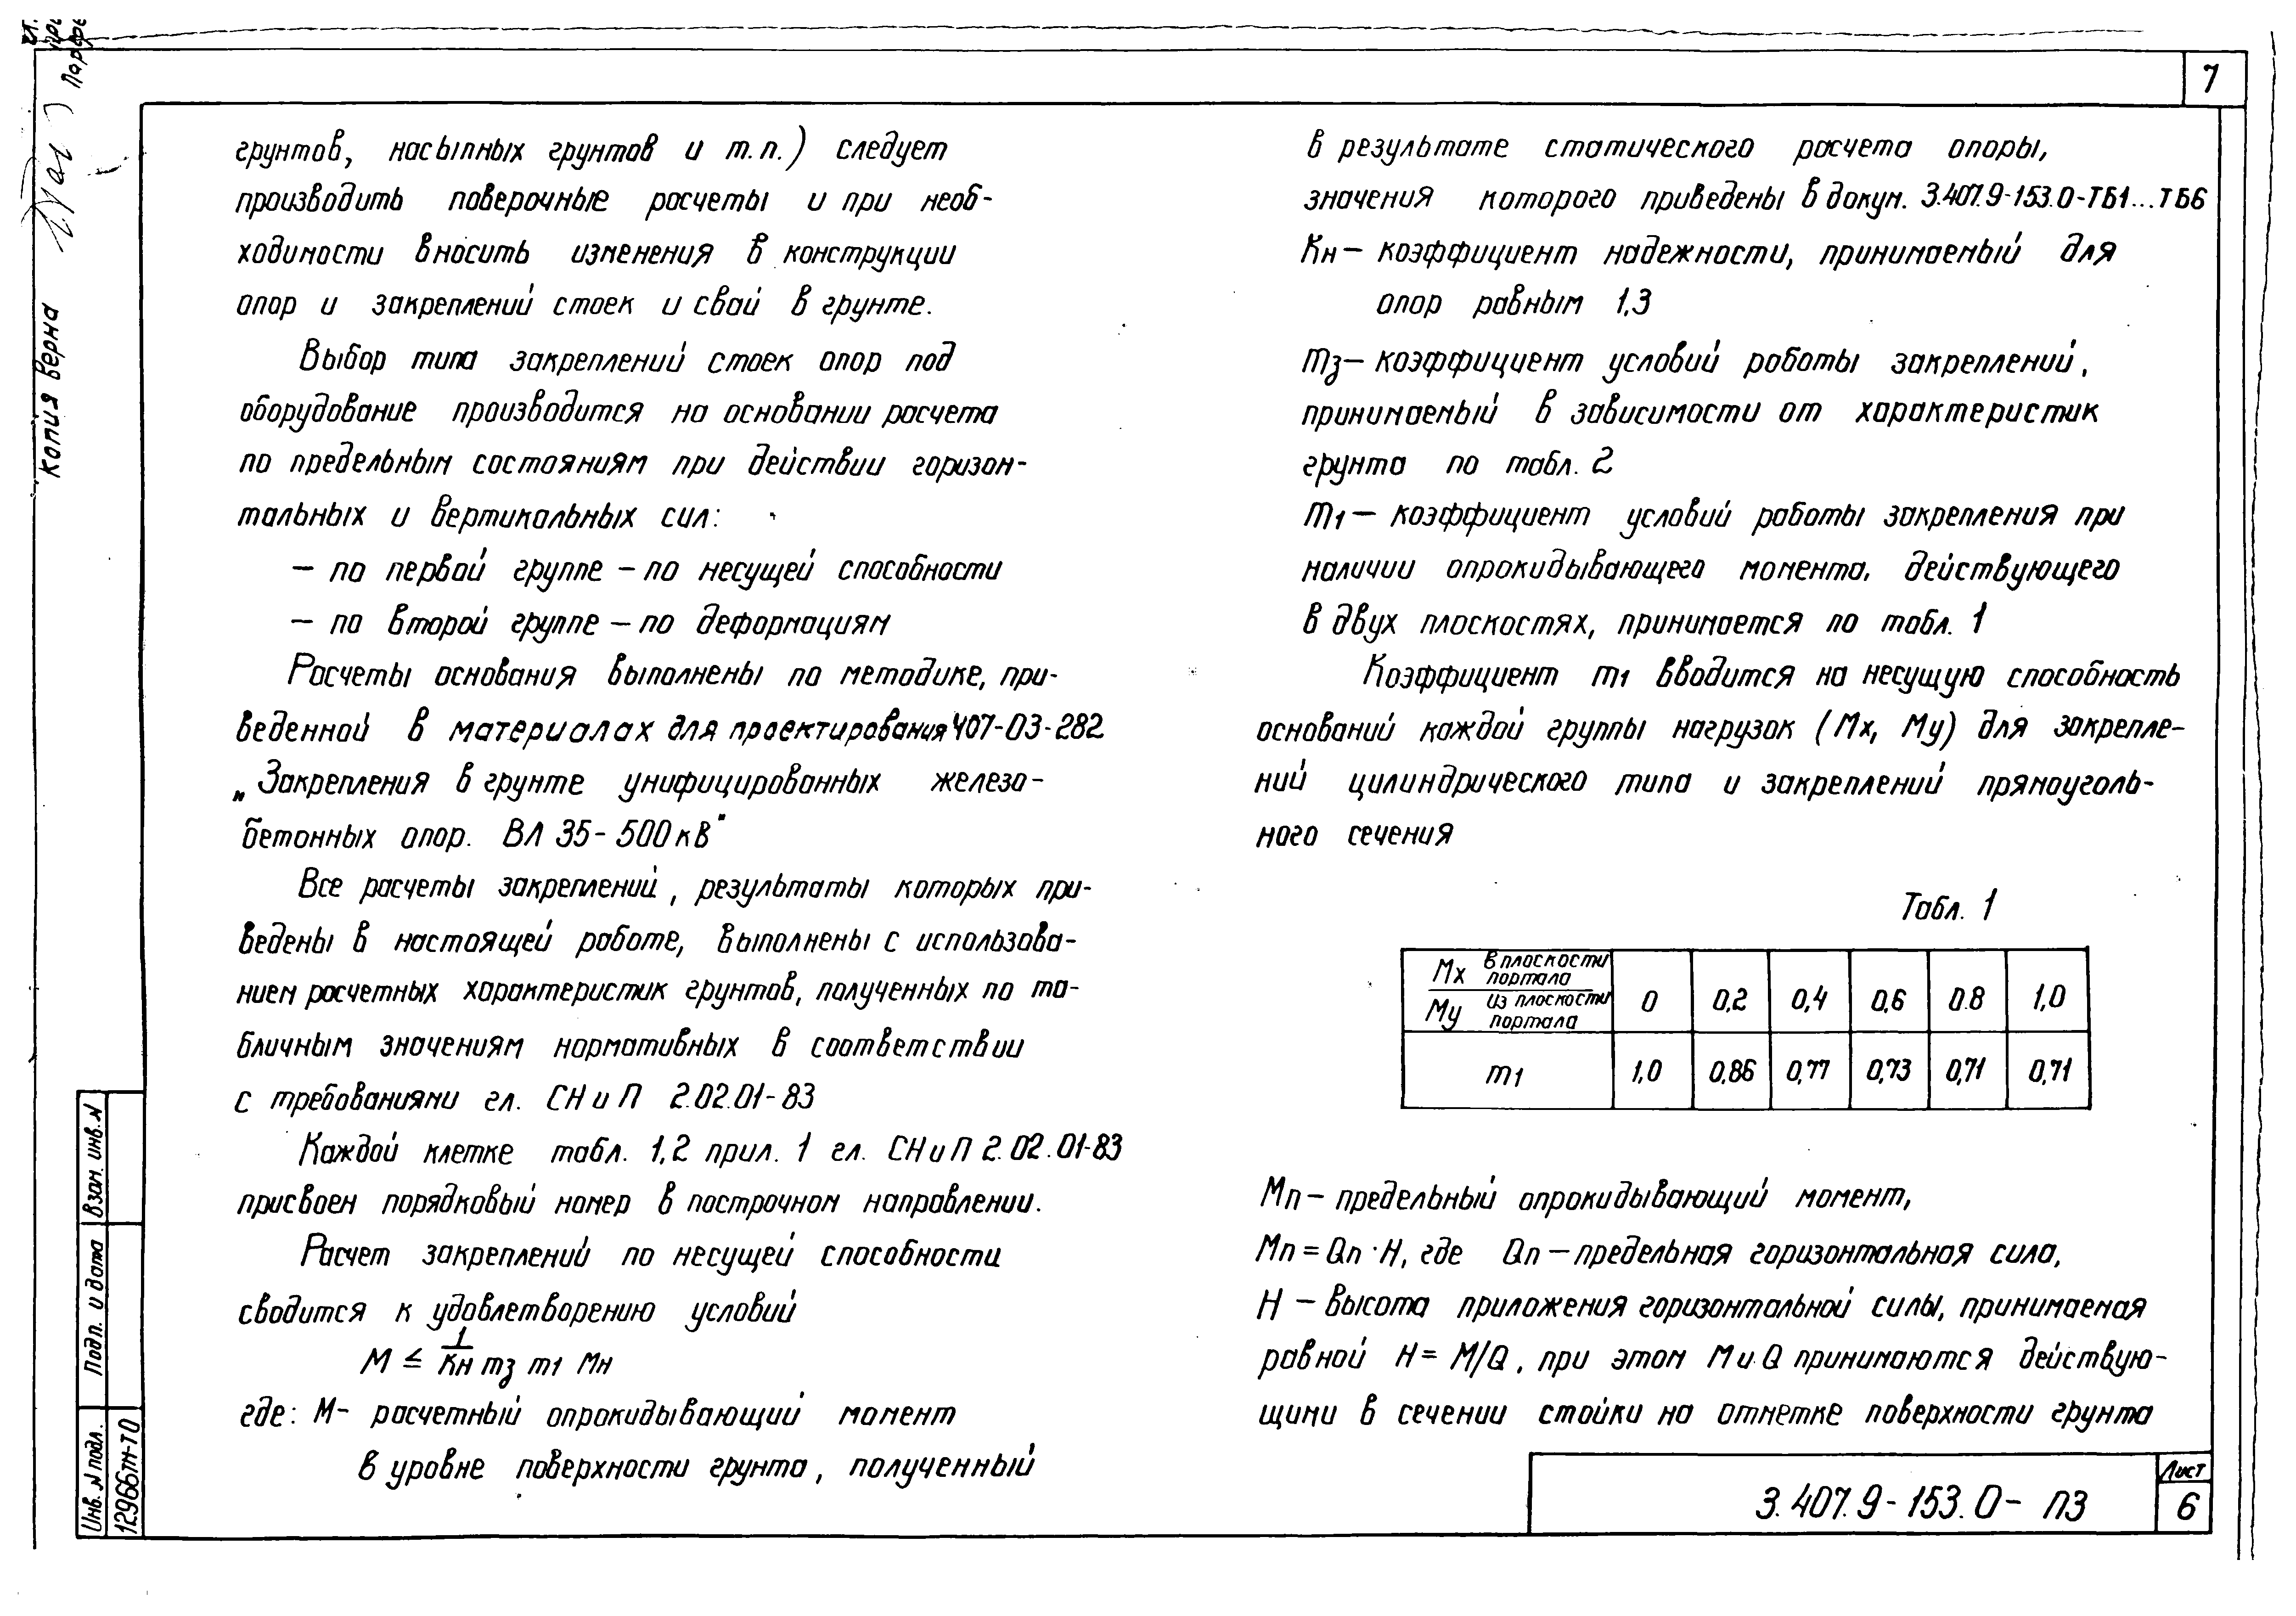 7
грунтов, насыпных грунтов и т.п.) следует
производить поверочные расчеты и при необ-
ходимости вносить изменения в конструкции
опор и закреплений стоек и свай в грунте.
Выбор типа закреплений стоек опор под
оборудование производится на основании расчета
по предельным состояниям при действии горизон-
тальных и вертикальных сил:
– по первой группе – по несущей способности
– по второй группе – по деформациям
Расчеты основания выполнены по методике, при-
веденной в материалах для проектирования 407-03-282
„Закрепления в грунте унифицированных железо-
бетонных опор. ВЛ 35-500кВ"
Все расчеты закреплений, результаты которых при-
ведены в настоящей работе, выполнены с использова-
нием расчетных характеристик грунтов, полученных по та-
бличным значениям нормативных в соответствии
с требованиями гл. СНиП 2.02.01-83
Каждой клетке табл. 1,2 прил. 1 гл. СНиП 2.02.01-83
присвоен порядковый номер в построчном направлении.
Расчет закреплений по несущей способности
сводится к удовлетворению условий
M ≤ 1/Kн mз m1 Mн
где: M- расчетный опрокидывающий момент
в уровне поверхности грунта, полученный
в результате статического расчета опоры,
значения которого приведены в докум. 3.407.9-153.0-ТБ1...ТБ6
Kн – коэффициент надежности, принимаемый для
опор равным 1,3
mз – коэффициент условий работы закреплений,
принимаемый в зависимости от характеристик
грунта по табл. 2
m1 – коэффициент условий работы закрепления при
наличии опрокидывающего момента, действующего
в двух плоскостях, принимается по табл. 1
Коэффициент m1 вводится на несущую способность
оснований каждой группы нагрузок (Mx, My) для закрепле-
ний цилиндрического типа и закреплений прямоуголь-
ного сечения
Табл. 1
Mx в плоскости портала / My из плоскости портала 0 0,2 0,4 0,6 0.8 1,0
m1 1,0 0,86 0,77 0,73 0,71 0,71
Mп – предельный опрокидывающий момент,
Mп = Qп · H, где Qп – предельная горизонтальная сила,
H – высота приложения горизонтальной силы, принимаемая
равной H = M/Q, при этом M и Q принимаются действую-
щими в сечении стойки на отметке поверхности грунта
3.407.9-153.0- ПЗ
Лист
6
Копия верна
Взам. инв. N
Подп. и дата
Инв. N подл.
12966тм-т0